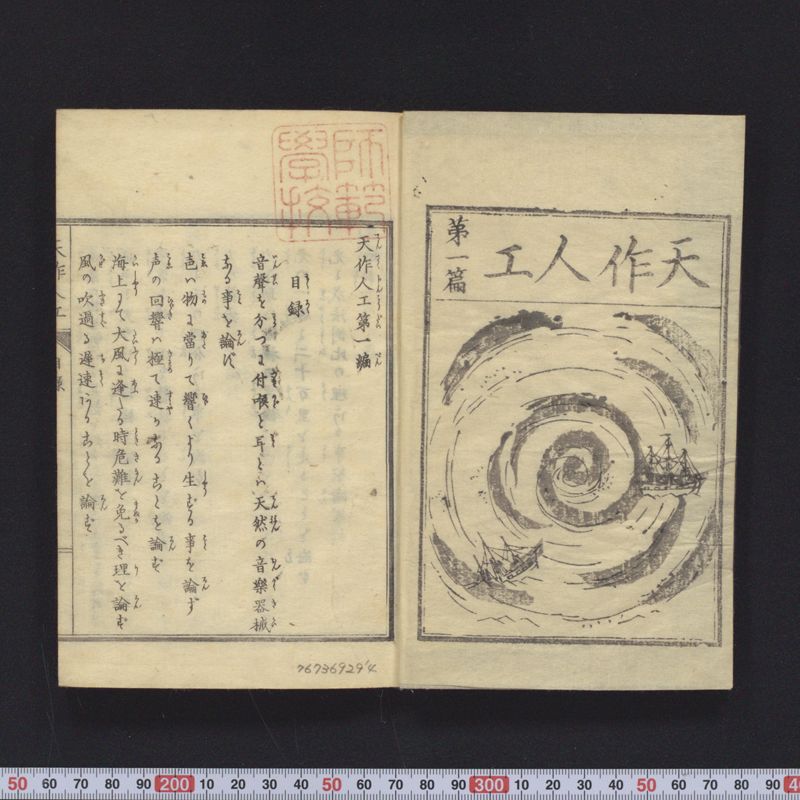 天作人工
第一篇
師範
學校
天作人工第一編
目録
音聲を分つに付喉と耳とハ天然の音樂器械
なる事を論ず
色ハ物に當りて響くより生ずる事を論ず
声の回響ハ極て速かなることを論ず
海上にて大風に逢たる時危難を免るべき理を論ず
風の吹過る遅速あることを論ず
天作人工
目録
767369294
50 60 70 80 90 200 10 20 30 40 50 60 70 80 90 300 10 20 30 40 50 60 70 80 90